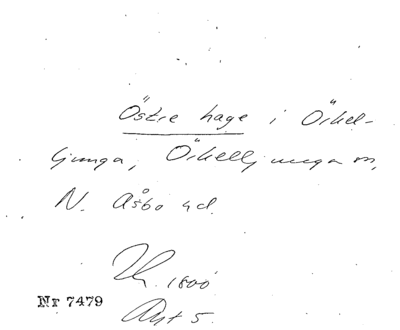 Östre hage i Örkel-
ljunga, Örkelljunga sn,
N. Åsbo hd.
1800
Nr 7479
Akt 5.